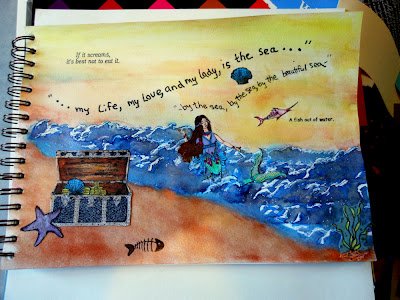 If it screams,
it's best not to eat it.
"... my life, my love, and my lady, is the sea ..."
"...by the sea, by the sea, by the beautiful sea..."
A fish out of water.